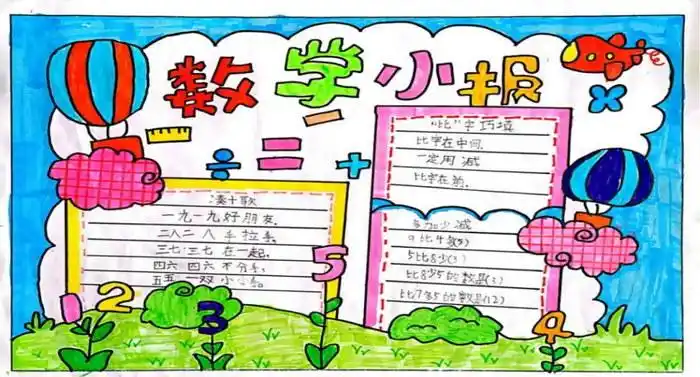 数学小报
÷ = + ×
"比"字巧填
比字在中间,
一定用减
比字在前,
多加少减
9比4多(5)
5比8少(3)
比8少5的数是(3)
比7多5的数是(12)
凑十歌
一九一九好朋友,
二八二八手拉手,
三七三七在一起,
四六四六不分
五五一双小
1 2 3 5 4